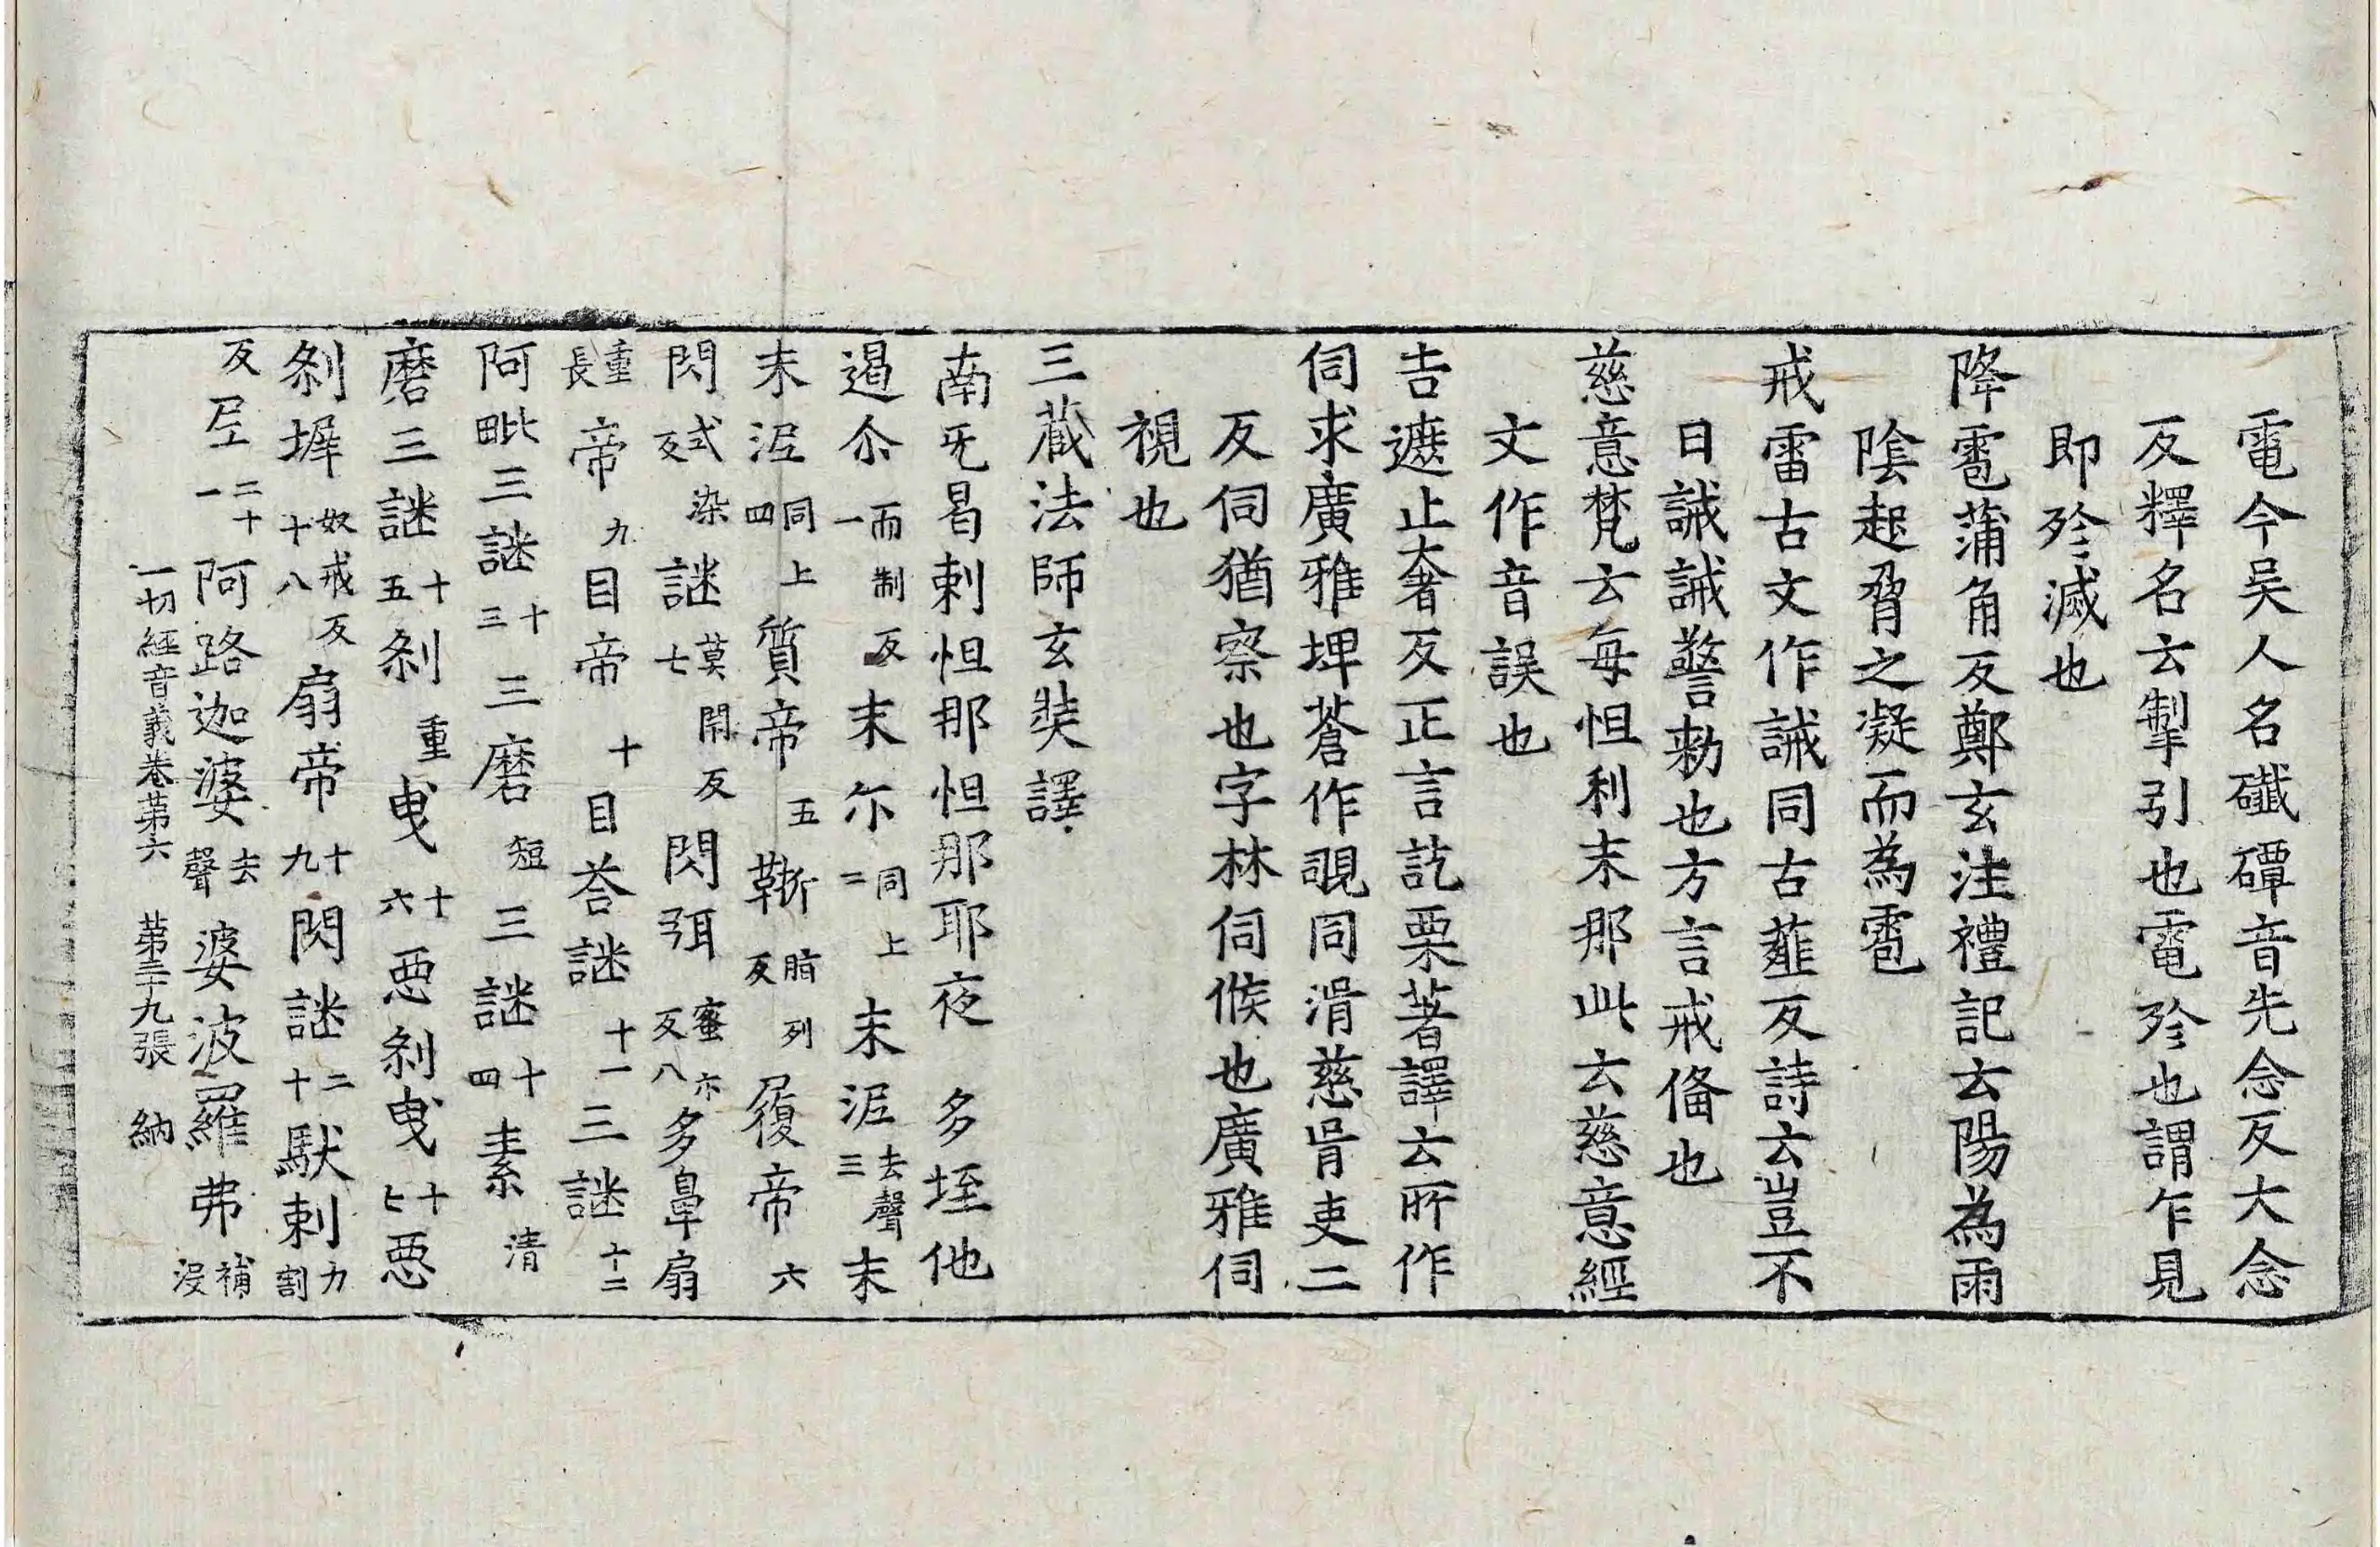 電今吴人名磹音先念反大念
反釋名云掣引也電殄也謂乍見
即殄滅也
降雹蒲角反鄭玄注禮記云陽為雨
陰起脅之凝而為雹
戒雷古文作誡同古薤反詩云豈不
日誡誡警勑也方言戒俻也
慈意梵云每怛利末那此云慈意經
文作音誤也
吉遮止奢反正言訖栗著譯云所作
伺求廣雅埤蒼作覗同滑慈胥吏二
反伺猶察也字林伺候也廣雅伺
視也
三藏法師玄奘譯
南旡曷剌怛那怛那耶夜 多垤他
遏尒而制反一末尒同上二末泥去聲三末
末泥同上四質帝五䩢脂列反履帝六
閃式染反謎莫閇反七閃弭蜜尒反八多鼻扇
重長帝九目帝十目荅謎十一三謎十二
阿毗三謎十三三磨短三謎十四素清
磨三謎十五刹重曳十六惡刹曳十七惡
刹墀奴戒反十八扇帝十九閃謎二十䭾剌力割
反𡰱二十一阿路迦婆去聲婆波羅弗補没
一切經音義卷第六 第三十九張 納